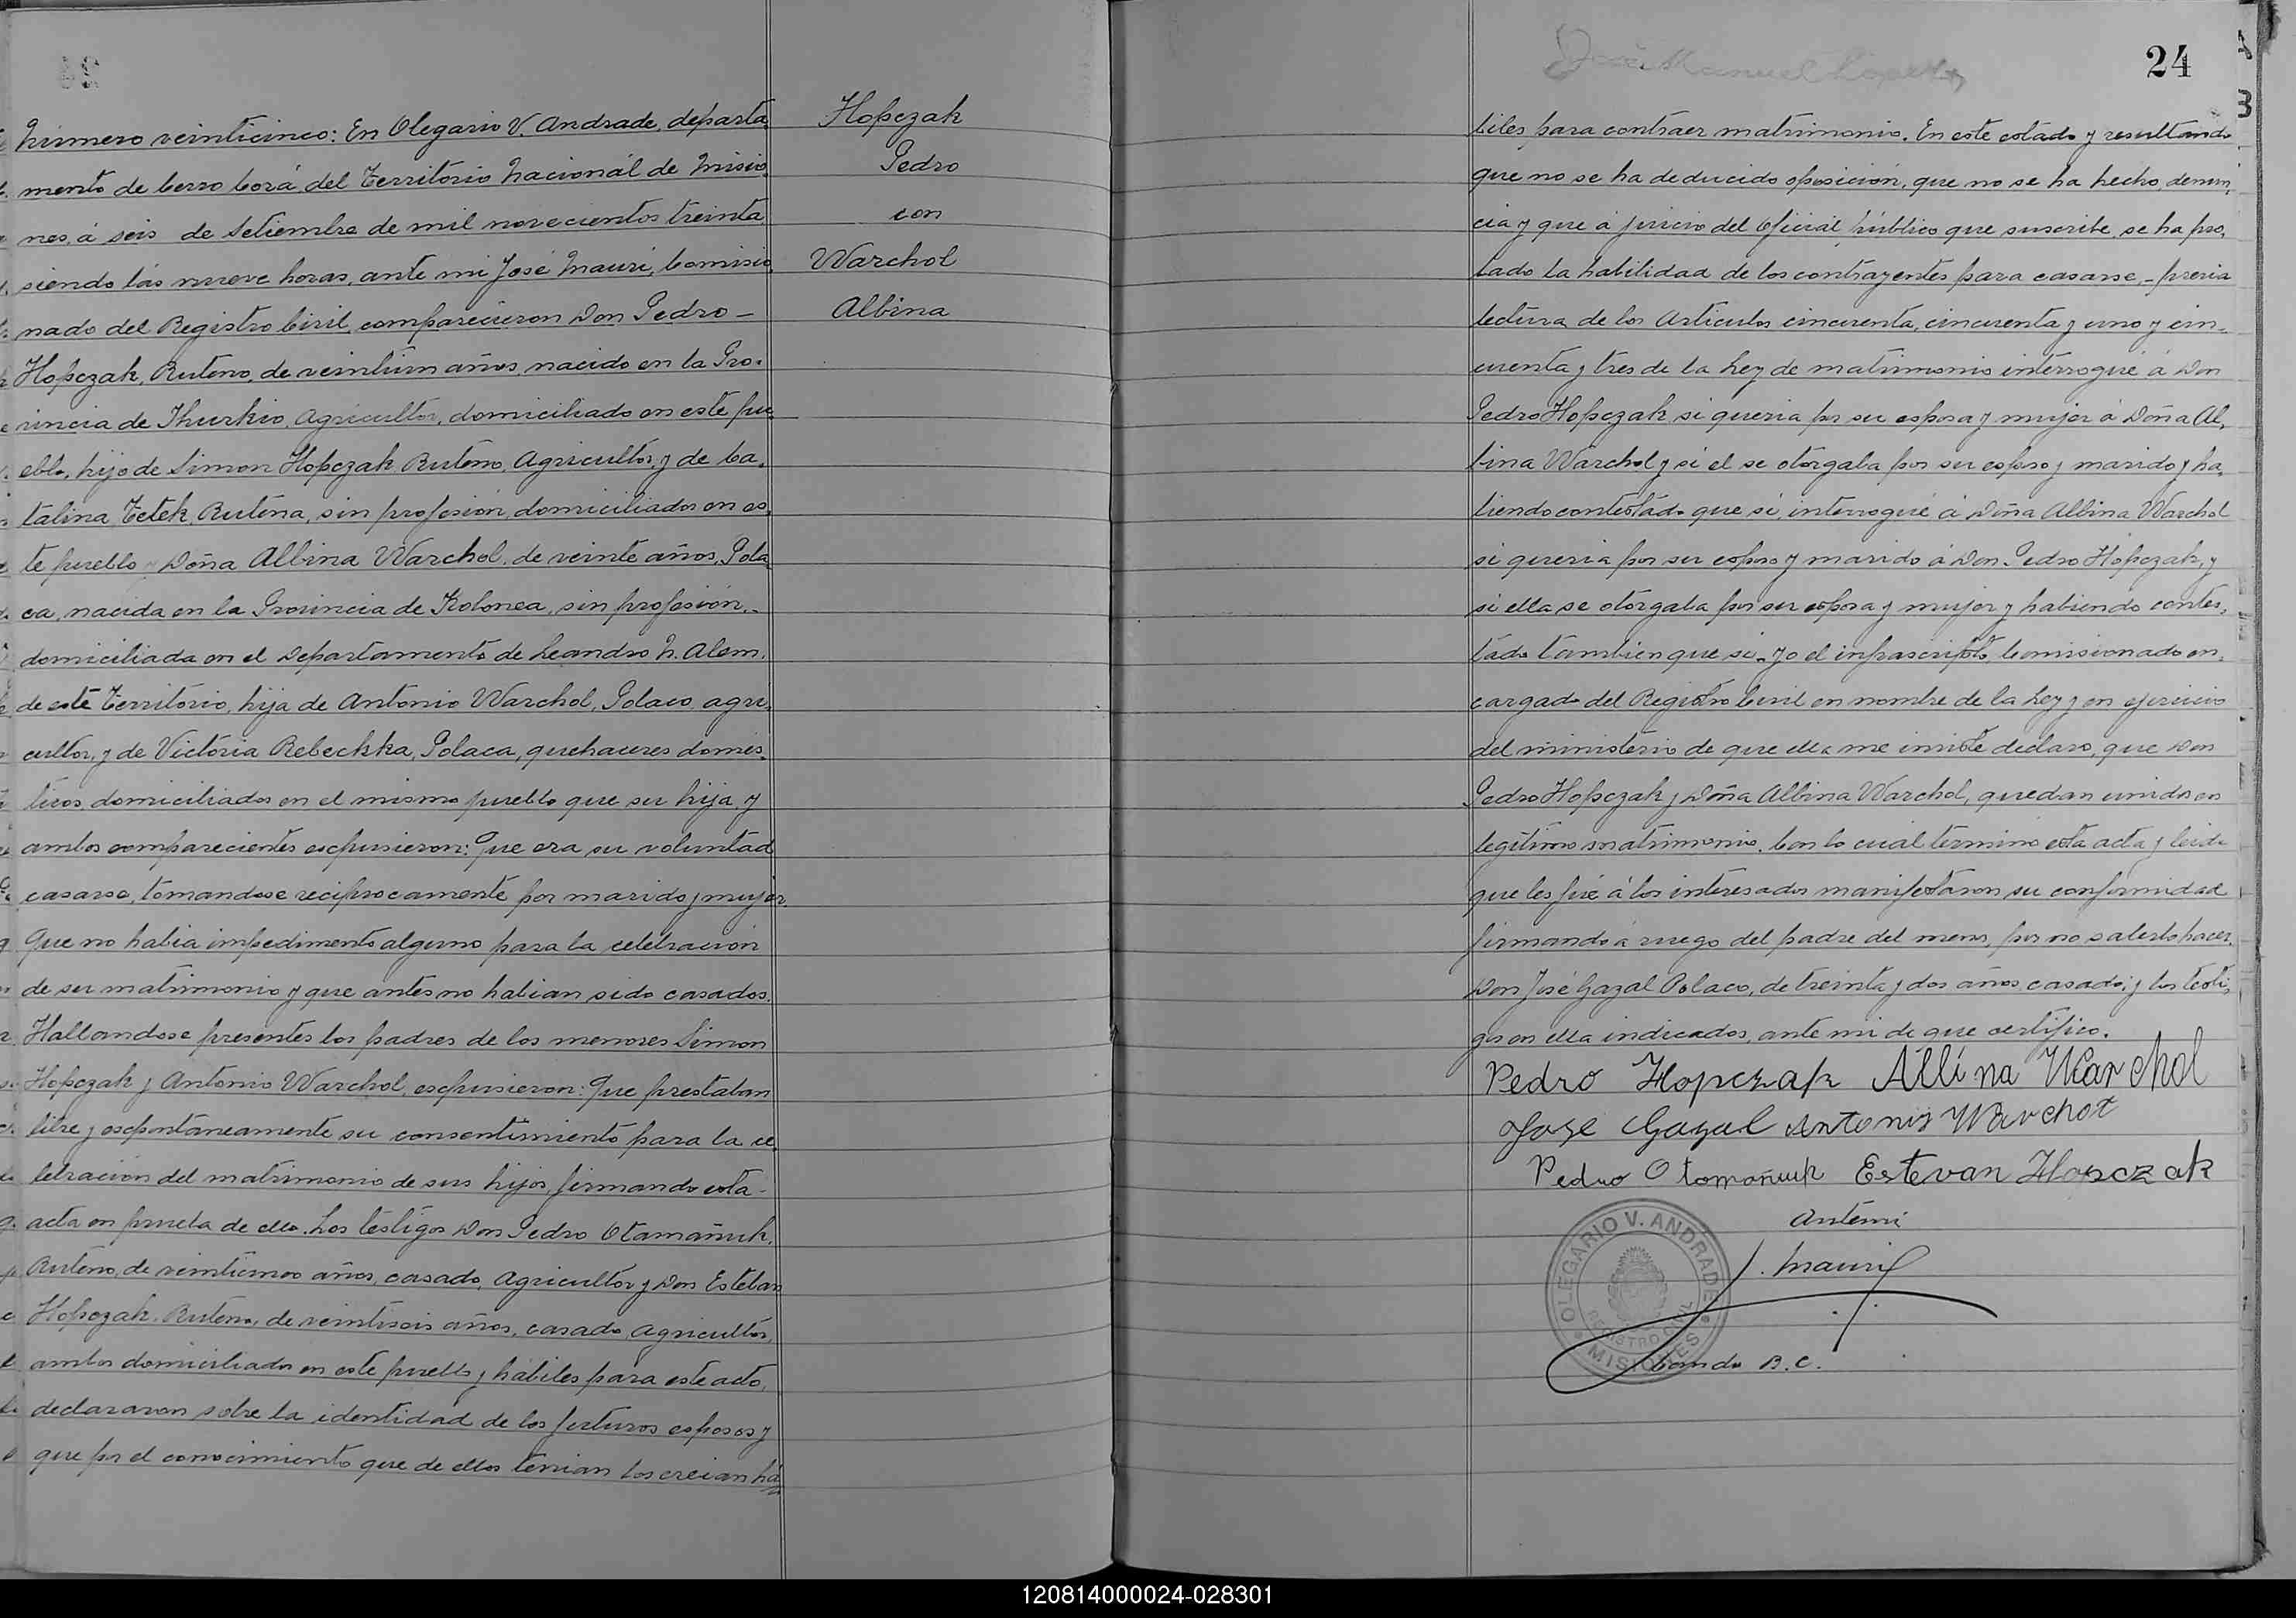 Número veinticinco: En Olegario V. Andrade, departa-
mento de Cerro Corá, del Territorio Nacional de Misio-
nes, á seis de Setiembre de mil novecientos treinta
siendo lás nueve horas, ante mi José Mauri, Comisio-
nado del Registro Civil, comparecieron Don Pedro -
Hopczak, Ruteno, de veintiun años, nacido en la Pro-
vincia de Thurkio, Agricultor, domiciliado en este pu-
eblo, hijo de Simon Hopczak, Ruteno, Agricultor, y de Ca-
talina Tetek, Rutena, sin profesión, domiciliados en es-
te pueblo y Doña Albina Warchol, de veinte años, Pola-
ca, nacida en la Provincia de Kolonea, sin profesión,-
domiciliada en el Departamento de Leandro N. Alem,
de este Territorio, hija de Antonio Warchol, Polaco, agri-
cultor, y de Victoria Rebeckka, Polaca, quehaceres domés-
ticos, domiciliados en el mismo pueblo que su hija, y
ambos comparecientes expusieron: Que era su voluntad
casarse, tomandose reciprocamente por marido y mujer.
Que no habia impedimento alguno para la celebración
de su matrimonio y que antes no habian sido casados.
Hallandose presentes los padres de los menores Simon
Hopczak y Antonio Warchol, expusieron: Que prestaban
libre y espontáneamente su consentimiento para la ce-
lebración del matrimonio de sus hijos, firmando esta -
acta en prueba de ello. Los testigos Don Pedro Otamañuk,
Ruteno, de veinticinco años, casado, Agricultor y Don Esteban
Hopczak, Ruteno, de veintiseis años, casado, Agricultor,
ambos domiciliados en este pueblo y hábiles para este acto,
declararon sobre la identidad de los futuros esposos y
que por el conocimiento que de ellos tenian los creian há-
Hopczak
Pedro
con
Warchol
Albina
José Manuel Lopez
24
biles para contraer matrimonio. En este estado y resultando
que no se ha deducido oposición, que no se ha hecho denun-
cia y que á juicio del Oficial público que suscribe, se ha pro-
bado la habilidad de los contrayentes para casarse, - previa
lectura de los Articulos cincuenta, cincuenta y uno y cin-
cuenta y tres de la Ley de matrimonio interrogué á Don
Pedro Hopczak si queria por su esposa y mujer á Doña Al-
bina Warchol y si el se otorgaba por su esposo y marido y ha-
biendo contestado que si, interrogué á Doña Albina Warchol
si queria por su esposo y marido á Don Pedro Hopczak, y
si ella se otorgaba por su esposa y mujer y habiendo contes-
tado tambien que si. Yo el infrascripto Comisionado en-
cargado del Registro Civil en nombre de la Ley y en ejercicio
del ministerio de que ella me inviste declaro, que Don
Pedro Hopczak y Doña Albina Warchol, quedan unidos en
legitimo matrimonio. Con lo cual termino esta acta y leida
que les fué á los interesados manifestaron su conformidad
firmando á ruego del padre del menor, por no saberlo hacer,
Don José Gazal Polaco, de treinta y dos años, casado; y los testi-
gos en ella indicados, ante mi de que certifico.
Pedro Hopczak Albina Warchol
Jose Gazal Antonij Warchoł
Pedro Otomañuk Estevan Hopczak
Antemi
J. Mauri
OLEGARIO V. ANDRADE
REGISTRO CIVIL
MISIONES
Comdo R.C.
120814000024-028301